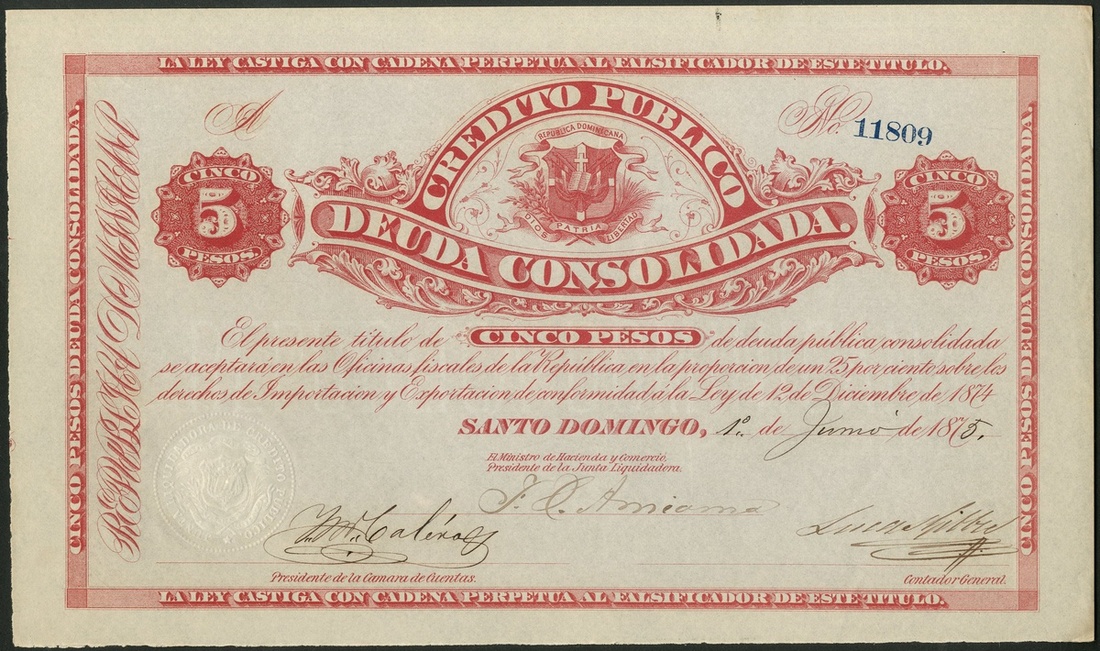 LA LEY CASTIGA CON CADENA PERPETUA AL FALSIFICADOR DE ESTE TITULO.
A
No. 11809
CREDITO PUBLICO
REPUBLICA DOMINICANA
DIOS PATRIA LIBERTAD
DEUDA CONSOLIDADA.
CINCO
5
PESOS.
CINCO
5
PESOS.
CINCO PESOS DEUDA CONSOLIDADA.
REPUBLICA DOMINICANA
CINCO PESOS DEUDA CONSOLIDADA.
El presente titulo de CINCO PESOS de deuda pública consolidada
se aceptará en las Oficinas fiscales de la República en la proporcion de un 25 por ciento sobre los
derechos de Importacion y Exportacion de conformidad á la Ley de 12 de Diciembre de 1874
SANTO DOMINGO, 1º de Junio de 1875.
El Ministro de Hacienda y Comercio,
Presidente de la Junta Liquidadora.
Presidente de la Camara de Cuentas.
Contador General.
LA LEY CASTIGA CON CADENA PERPETUA AL FALSIFICADOR DE ESTE TITULO.